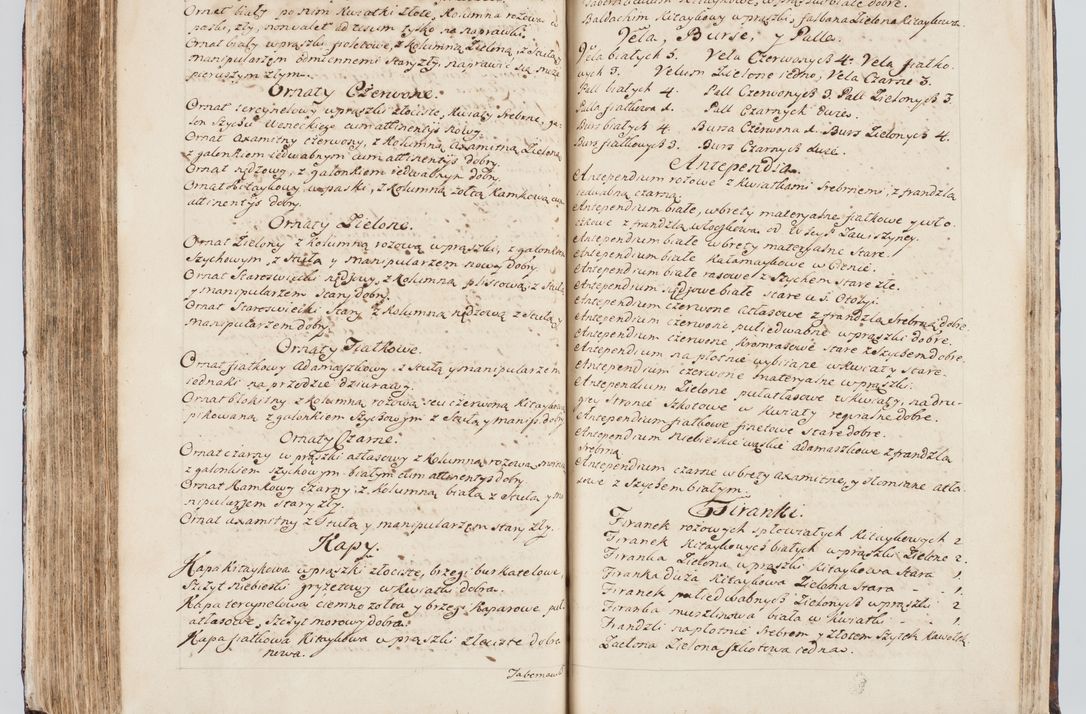 Ornat biały po nim kwiatki złote, kolumna rożowa w
paski, zły, non valet ad usum tylko na naprawki.
Ornat biały w prążki fioletowe, z kolumną zieloną, z stułą y
manipularzem odmiennemi stary zły, naprawić się może
pierwszym złym.
Ornaty Czerwone.
Ornat tercynelowy w prążki złociste, kwiaty srebrne, ga-
lon szychu Weneckiego cum attinentys nowy.
Ornat axamitny czerwony, z kolumną axamitną zieloną
z galonkiem iedwabnym cum attinentys dobry.
Ornat rądzowy, z galonkiem iedwabnym dobry.
Ornat kitaykowy w paski, z kolumną żołtą kamkową cum
attinentys dobry.
Ornaty Zielone.
Ornat Zielony z kolumną rożową w prążki, z galonkiem
szychowym, z stułą y manipularzem nowy dobry.
Ornat Staroswiecki rądzowy, z kolumną z stułą
y manipularzem stary dobry.
Ornat Staroswiecki stary z kolumną rądzową z stułą y
manipularzem dobry.
Ornaty Fiałkowe.
Ornat fiałkowy adamaszkowy, z stułą y manipularzem
iednaki na przodzie dziurawy.
Ornat blokitny z kolumną rożową seu czerwoną kitayką
pikowaną z galonkiem szychowym z stułą y manip: dobry
Ornaty Czarne.
Ornat czarny w prążki atłasowy z kolumną rożową
z galonkiem szychowym białym cum attinentys dobry
Ornat kamkowy czarny, z kolumną białą z stułą y ma
nipularzem stary zły.
Ornat axamitny z stułą y manipularzem stary zły.
Kapy.
Kapa kitaykowa w prążki złociste, brzegi burkatelowe,
szczyt niebieski gryzetowy w kwiatki dobra.
Kapa tercynelowa ciemno żołta y brzegi kaparowe puł-
atłasowe, szczyt morowy dobra.
Kapa fiałkowa kitaykowa w prążki złociste dobra
nowa.
Baldachim kitaykowy w prążki, farbana zielona kitaykowa.
Vela, Burse, y Palle.
Vela białych 5. Vela Czerwonych 4. Vela fiałko
wych 3. Velum Zielone iedno, Vela Czarne 3.
Pall białych 4. Pall Czerwonych 3. Pall Zielonych 3.
Palla fiałkowa 1. Pall Czarnych dwie.
Burs białych 4. Bursa Czerwona 1. Burs Zielonych 4.
Burs fiałkowych 3. Burs Czarnych dwie.
Antependia.
Antependium rożowe z kwiatkami srebrnemi, z frandzlą
iedwabną czarną.
Antependium białe, w brety materyalne fiałkowe, y wło
czkowe z frandzlą włoczkową od Zawiszyney.
Antependium białe w brety materyalne stare.
Antependium białe kałamaykowe w
Antependium białe rasowe z szychem stare złe.
Antependium rądzowe białe stare u S. Otolyi.
Antependium czerwone atłasowe z frandzlą srebrną dobre.
Antependium czerwone puł iedwabne w prążki dobre.
Antependium czerwone kromrasowe stare z szychem dobre.
Antependium na płotnie wybiiane w kwiaty stare.
Antependium czerwone materyalne w prążki.
Antependium Zielone puł atłasowe w kwiaty, na dru-
giey stronie szkotowe w kwiaty reprasne dobre.
Antependium fiałkowe finetowe stare dobre.
Antependium niebieskie wąskie adamaszkowe z frandzlą
srebrną
Antependium czarne w brety axamitne, y słomiane atła-
sowe z szychem białym.
Firanki.
Firanek rożowych spłowiałych kitaykowych 2
Firanek kitaykowych białych w prążki Zielone 2.
Firanka Zielona w prążki kitaykowa stara 1.
Firanka duża kitaykowa Zielona stara - - 1.
Firanek puł iedwabnych Zielonych w prążki 2
Firanka muszlinowa biała w kwiatki - - 1.
Frandzli na płotnie srebrem y złotem szytek kawołek
Zasłona Zielona szliotowa iedna.